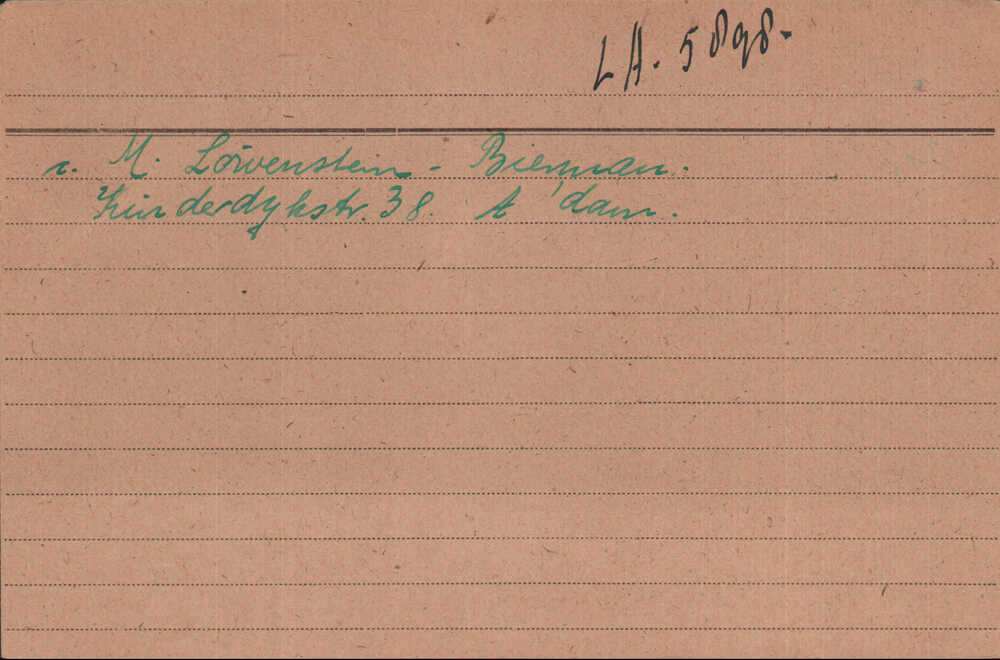 LA. 5898.
r. M. Löwenstein - Bierman.
Kinderdykstr. 38. A'dam.